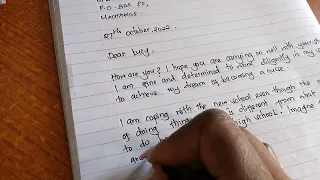 P.O. BOX
MACHAKOS
07th October, 2022
Dear Lucy,
How are you? I hope you are carrying on well with your
I am fine and determined to work diligently in my
to achieve my dream of becoming a nurse.
I am coping with the new school even though the
of doing things is different from what
to do high school. Imagine
are